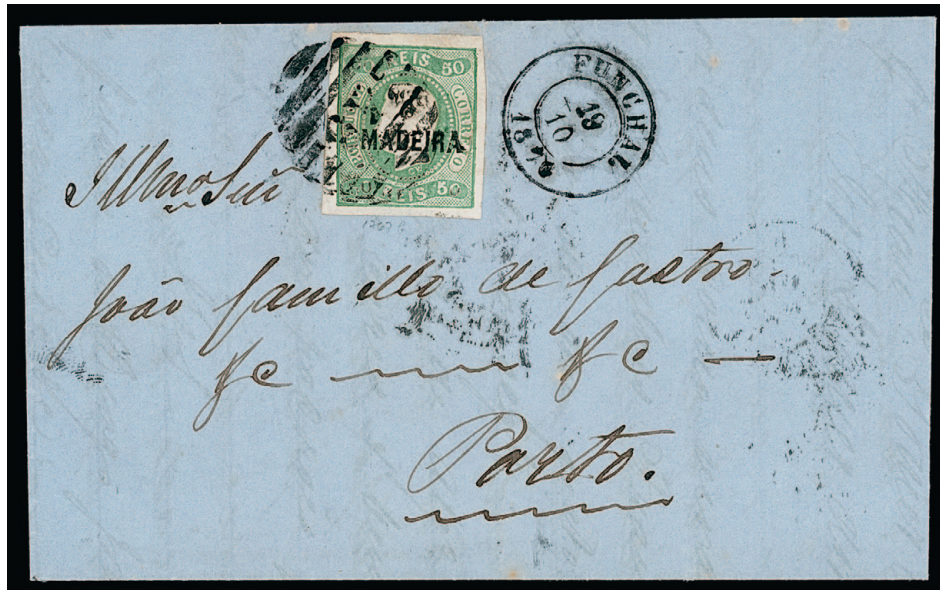 REIS 50
CORREIO
MADEIRA
REIS 50
FUNCHAL
19
10
Illmo Snr
João Camillo de Castro.
&c &c
Porto.